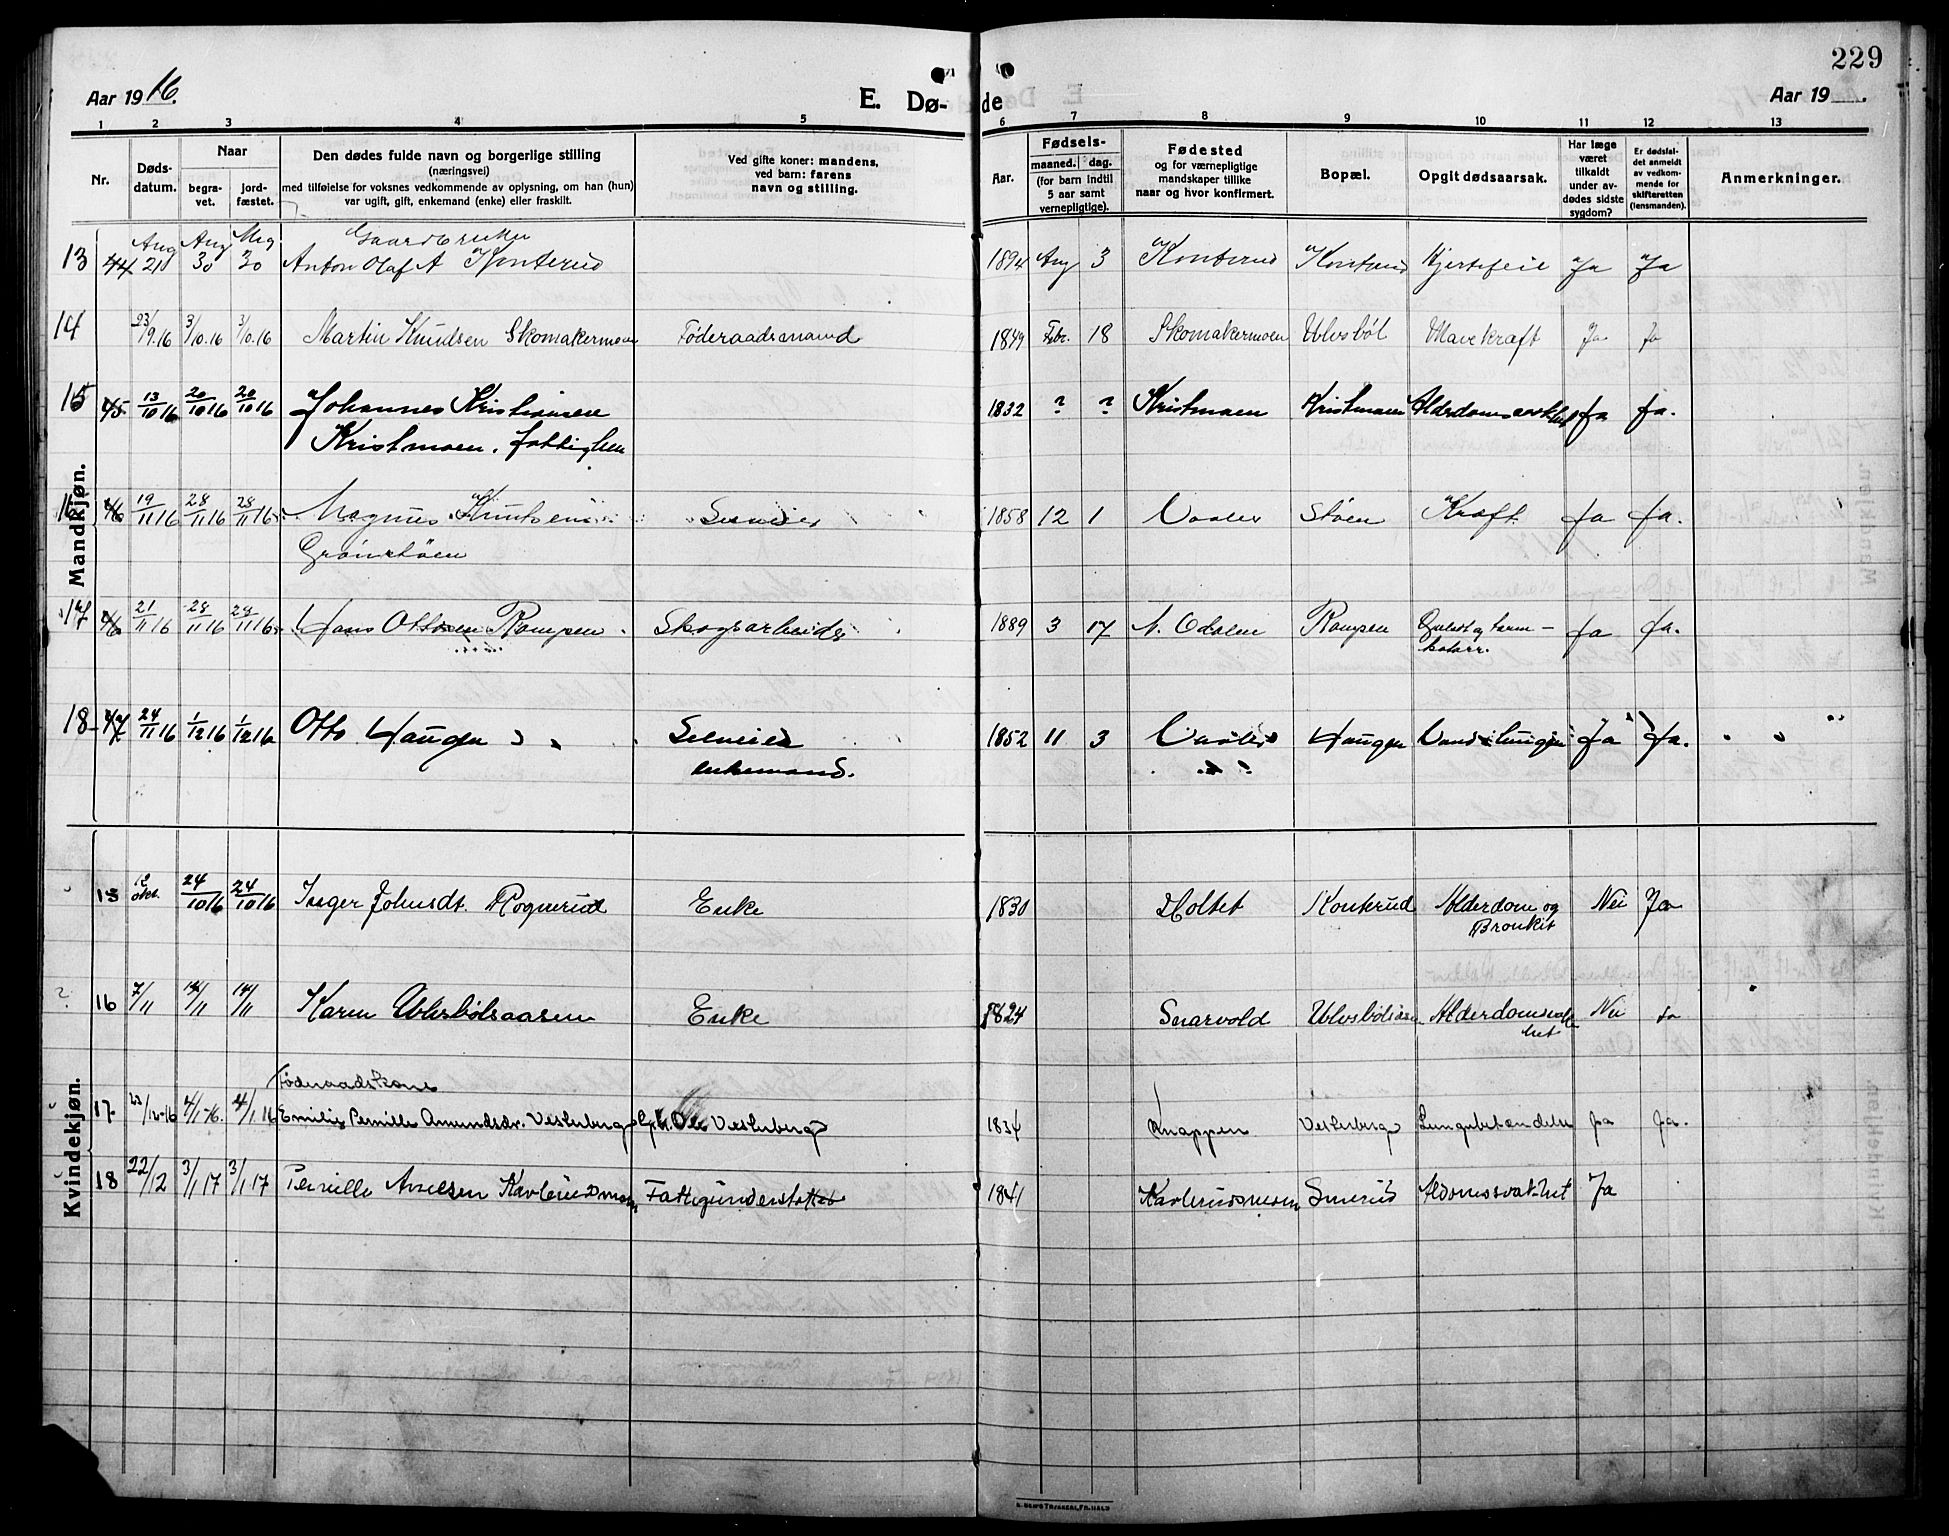 229
Aar 1916.
E. Dø-
de
Aar 19
1 2 3 4 5 6 7 8 9 10 11 12 13
Nr.
Døds-
datum.
Naar
begra-
vet.
jord-
fæstet.
Den dødes fulde navn og borgerlige stilling
(næringsvei)
med tilføielse for voksnes vedkommende av oplysning, om han (hun)
var ugift, gift, enkemand (enke) eller fraskilt.
Ved gifte koner: mandens,
ved barn: farens
navn og stilling.
Aar.
Fødsels-
maaned. dag.
(for barn indtil
5 aar samt
vernepligtige).
Fødested
og for værnepligtige
mandskaper tillike
naar og hvor konfirmert.
Bopæl.
Opgit dødsaarsak.
Har læge
været
tilkaldt
under av-
dødes sidste
sygdom?
Er dødsfal-
det anmeldt
av vedkom-
mende for
skifteretten
(lensmanden).
Anmerkninger.
Mandkjøn.
Gaardbruker
13 44 Aug 21 Aug 30 Aug 30 Anton Olaf A Konterud 1894 Aug 3 Konterud Konterud Hjertefeil Ja Ja
14 23/9.16 3/10.16 3/10.16 Martin Knudsen Skomakermoen Føderaadsmand 1849 Febr. 18 Skomakermoen Ulvsbøl Mavekræft Ja Ja
15 45 13/10 16 20/10 16 20/10 16 Johannes Kristiansen 1832 ? ? Kristmoen Kristmoen Alderdomssvakhet Ja Ja.
Kristmoen. fattiglem
16 46 19/11 16 28/11 16 28/11 16 Magnus Knutsen Selveier 1858 12 1 Vaaler Støen Kræft Ja Ja.
Grønstøen
17 46 21/11 16 28/11 16 28/11 16 Hans Ottosen Rampen Skogsarbeider 1889 3 17 N. Odalen Rampen og tarm- Ja Ja.
katarr.
18 47 24/11 16 1/12 16 1/12 16 Otto Haugen Selveier 1852 11 3 Vaaler Haugen Vand i lungen Ja Ja.
enkemand.
Kvindekjøn.
15 12 okt. 24/10 16 24/10 16 Inger Johnsdt. Rognerud Enke 1830 Holtet Konterud Alderdom og Nei Ja
Bronkit
16 7/11 14/11 14/11 Karen Ulvsbølsaasen Enke 1824 Snarvold Nei Ja
het
Føderaadskone
17 23/12-16 4/1-16. 4/1 16 Emilie Pernille Amundsdr. Vesterberg Ole Vesterberg 1834 Knappen Vesterberg Lungebetændelse Ja Ja.
18 22/12 3/1 17 3/1 17 Pernille Arnesen Kavlerudsmoen Fattigunderstøttet 1841 Kavlerudsmoen Smerud Aldomssvakhet Ja